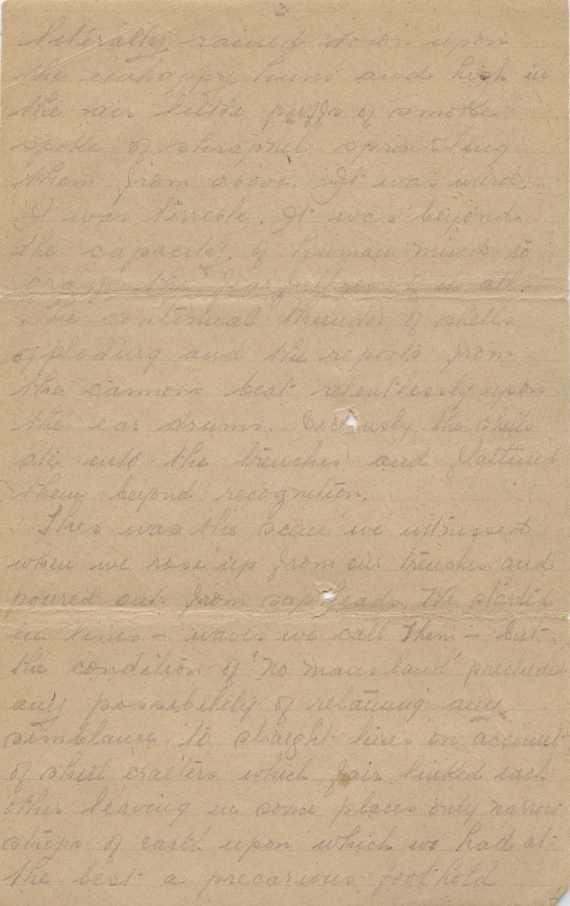 3
literally rained down upon
the unhappy huns and high in
the air little puffs of smoke
spoke of shrapnel sprinkling
them from above. It was weird.
It was terrible. It was beyond
the capacity of human minds to
grasp the fearfullness it all.
The continual thunder of shells
exploding and the reports from
the cannons beat relentlessly upon
the ear drums. the shells
ate into the trenches and flattened
them beyond recognition.
This was the scene we witnessed
when we rose up from our trenches and
poured out from sap heads. We started
in lines - waves we call them - but
the condition of 'no mans land' precluded
any possibility of retaining any
semblance to straight lines on account
of shell craters which fair linked each
other leaving in some places only narrow
strips of earth upon which we had at
the best a precarious foothold